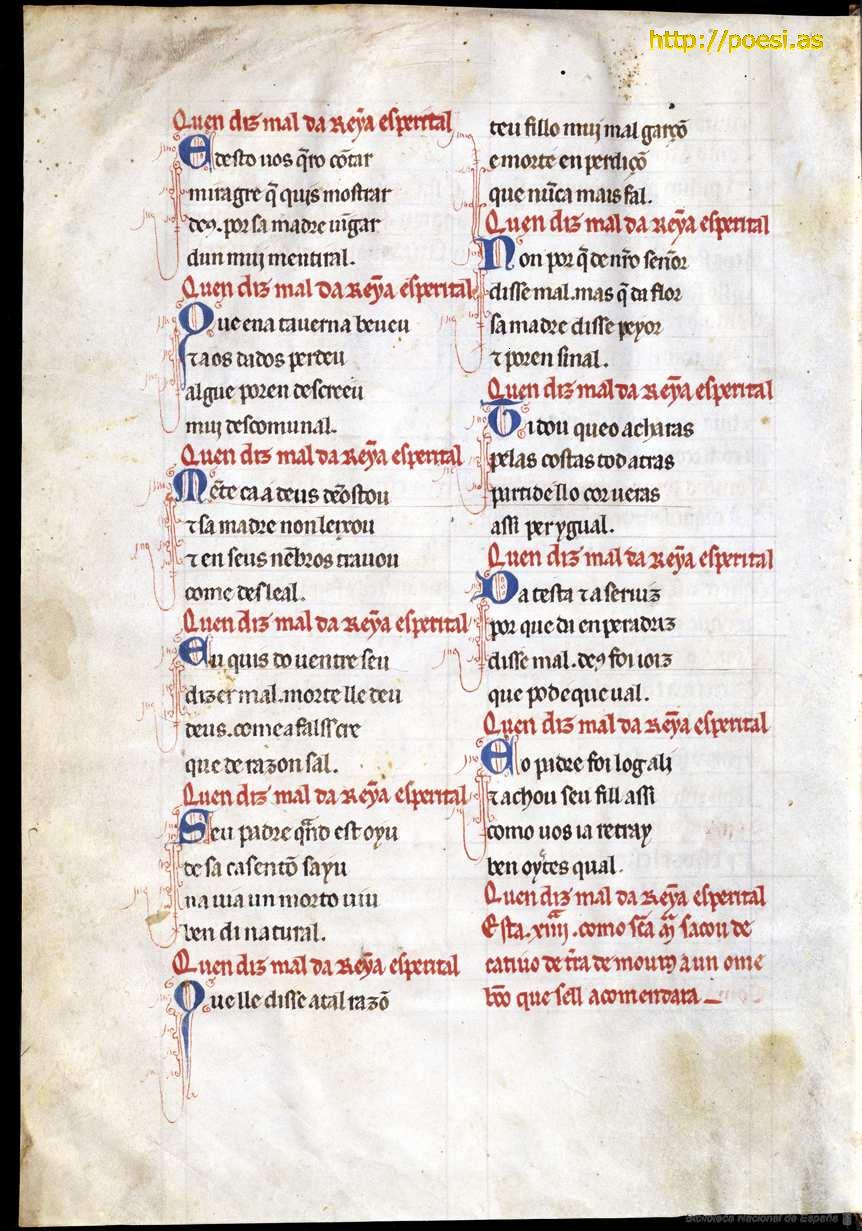 http://poesi.as
Quen diz mal da Reỹa esperital
E desto uos q̃ro cõtar
miragre q̃ quis mostrar
deꝯ. por sa madre uĩgar
dun mui mentiral.
Quen diz mal da Reỹa esperital
Que ena tauerna beueu
⁊ aos dados perdeu
algue poren descreeu
mui descomunal.
Quen diz mal da Reỹa esperital
Mẽte ca a deus dẽostou
⁊ sa madre non leixou
⁊ en seus nẽbros trauou
come desleal.
Quen diz mal da Reỹa esperital
Eu quis do uentre seu
dizer mal. morte lle deu
deus. come a falss cre
que de razon sal.
Quen diz mal da Reỹa esperital
Seu padre quãd est oyu
de sa casentõ sayu
na uia un morto uiu
ben di natural.
Quen diz mal da Reỹa esperital
Que lle disse atal razõ
teu fillo mui mal garçõ
e morte en perdiçõ
que nũca mais fal.
Quen diz mal da Reỹa esperital
Non por q̃ de nr̃o señor
disse mal. mas q̃ da flor
sa madre disse peyor
⁊ poren sinal.
Quen diz mal da Reỹa esperital
Ti dou que o acharas
pelas costas tod atras
partidello cor ueras
assi per ygual.
Quen diz mal da Reỹa esperital
Da testa ⁊ a seruiz
por que da enperadriz
disse mal. deꝯ foi ioiz
que pode que ual.
Quen diz mal da Reỹa esperital
E o padre foi log ali
⁊ achou seu fill assi
como uos ia retray
ben oytes qual.
Quen diz mal da Reỹa esperital
Esta. xiiii. como sc̃a mã sacou de
catiuo de tr̃a de mouros a un ome
bõo que sell acomendara
Biblioteca Nacional de España